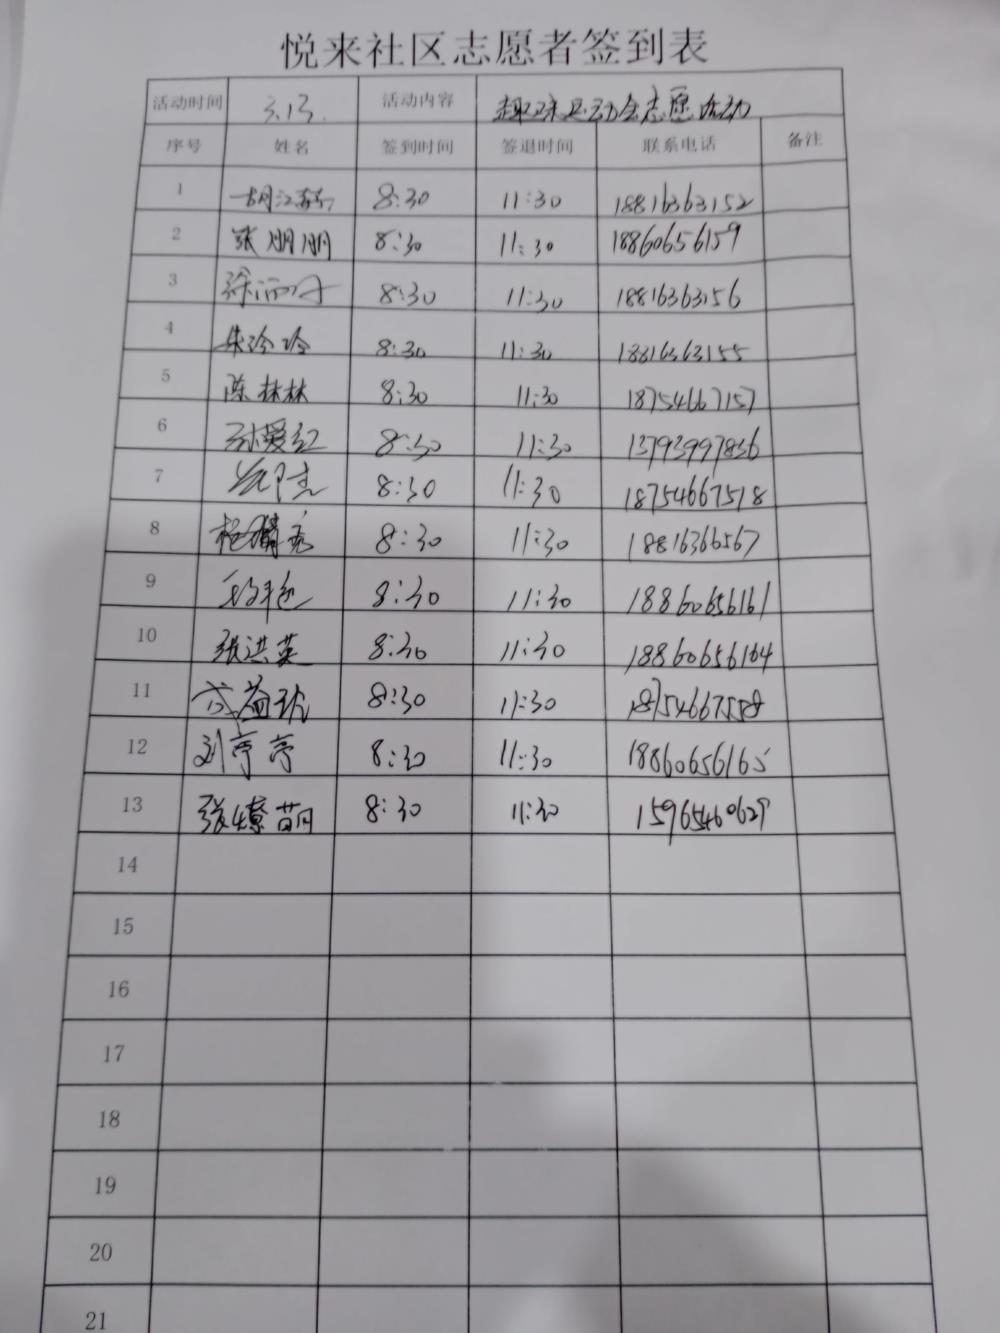 悦来社区志愿者签到表
活动时间 3.13. 活动内容 趣味运动会志愿活动
序号 姓名 签到时间 签退时间 联系电话 备注
1 8:30 11:30 18816363152
2 张朋朋 8:30 11:30 18860656159
3 8:30 11:30 18816363156
4 朱玲玲 8:30 11:30 18816363155
5 陈林林 8:30 11:30 18754667157
6 孙爱红 8:30 11:30 13793997836
7 8:30 11:30 18754667518
8 8:30 11:30 18816366567
9 8:30 11:30 18860656161
10 张洪英 8:30 11:30 18860656164
11 8:30 11:30 18754667558
12 刘亭亭 8:30 11:30 18860656165
13 8:30 11:30 15965460629
14
15
16
17
18
19
20
21